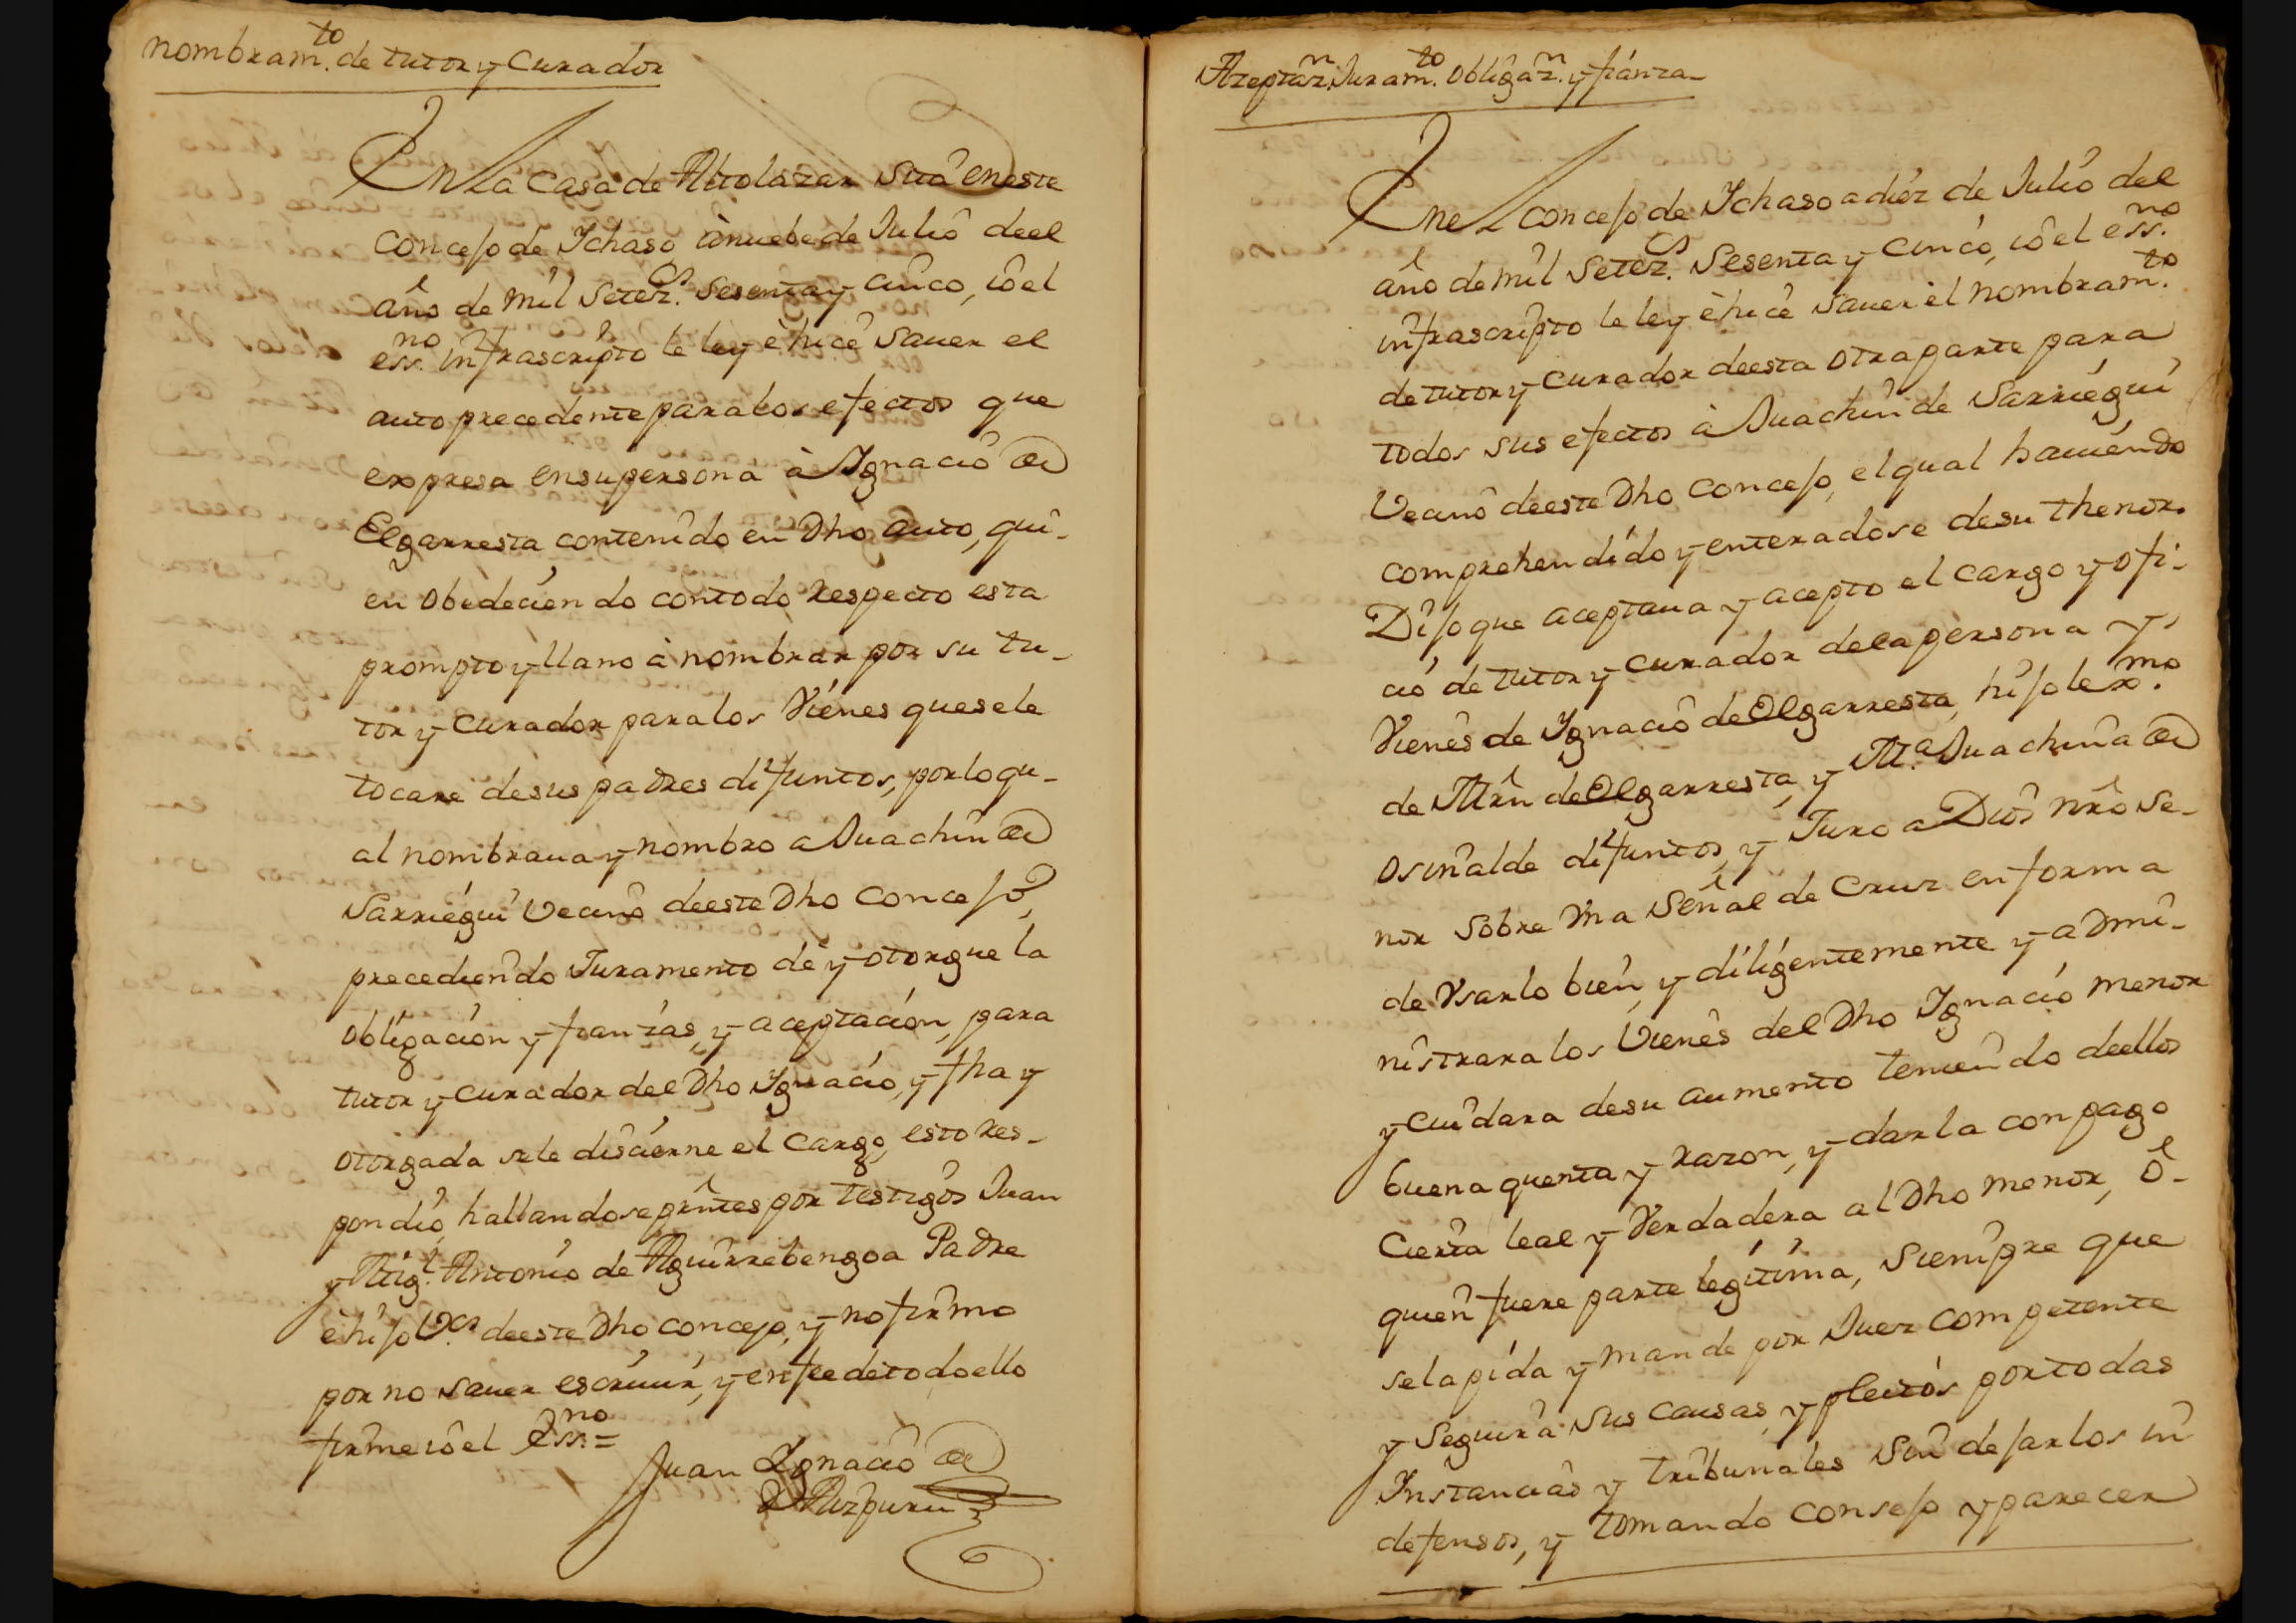 nombram.to de tutor y Curador
En la Casa de Altolazar sita en este
Concejo de Ychaso, à nuebe de Julio de el
año de mil Setez.s sesenta y cinco, io el
ess.no infrascripto le ley è hicè saver el
auto precedente para los efectos que
expresa en su persona à Ygnacio de
Elgarresta contenido en Dho auto, qui-
en obedeciendo con todo respecto esta
prompto y llano à nombrar por su tu-
tor y Curador para los Vienes que se le
tocare de sus padres difuntos, por lo qu-
al nombrava y nombro a Juachin de
Sarriegui Vecino de este Dho Concejo,
precediendo Juramento dè y otorgue la
obligacion y fianzas, y aceptacion, para
tutor y Curador del Dho Ygnacio, y fha y
otorgada se le discierne el Cargo, esto res-
pondio, hallandose prntes por testigos Juan
y Mig.l Antonio de Aguirrebengoa Padre
è hijo V.os de este Dho concejo, y no firmo
por no saver escrivir, y en fee de todo ello
firme io el Ess.no =
Juan Ygnacio de
Aizpuru
Azeptaz.n Juram.to obligaz.n y fianza
En el Concejo de Ychaso a diez de Julio del
año de mil Setez.s Sesenta y Cinco, io el ess.no
infrascripto le ley è hicè saver el nombram.to
de tutor y Curador de esta otra parte para
todos sus efectos à Juachin de Sarriegui
Vecino de este Dho Concejo, el qual haviendo
comprehendido y enteradose de su thenor.
Dijo que aceptava y acepto el cargo y ofi-
cio de tutor y Curador de la persona y
Vienes de Ygnacio de Elgarresta, hijo lex.mo
de Mrn de Elgarresta, y M.a Juachina de
Osinalde difuntos, y Juro a Dios nro Se-
nor sobre Vna Señal de Cruz en forma
de Vsarlo bien, y diligentemente y admi-
nistrara los Vienes del Dho Ygnacio menor
y cuidara de su aumento teniendo de ellos
buena quenta y razon, y darla con pago
Cierta leal y Verdadera al Dho menor, ô
quien fuere parte legitima, siempre que
se la pida y mande por Juez competente
y Seguirà sus causas, y pleitos por todas
Instancias y tribunales sin dejarlos in
defensos, y tomando consejo y parecer